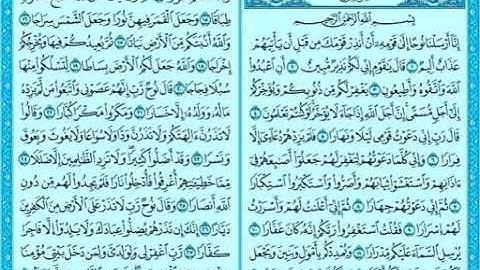 بِسْمِ اللَّهِ الرَّحْمَٰنِ الرَّحِيمِ
إِنَّا أَرْسَلْنَا نُوحًا إِلَىٰ قَوْمِهِ أَنْ أَنذِرْ قَوْمَكَ مِن قَبْلِ أَن يَأْتِيَهُمْ
عَذَابٌ أَلِيمٌ ١ قَالَ يَٰقَوْمِ إِنِّي لَكُمْ نَذِيرٌ مُّبِينٌ ٢ أَنِ اعْبُدُوا
اللَّهَ وَاتَّقُوهُ وَأَطِيعُونِ ٣ يَغْفِرْ لَكُم مِّن ذُنُوبِكُمْ وَيُؤَخِّرْكُمْ
إِلَىٰ أَجَلٍ مُّسَمًّى إِنَّ أَجَلَ اللَّهِ إِذَا جَاءَ لَا يُؤَخَّرُ لَوْ كُنتُمْ تَعْلَمُونَ ٤
قَالَ رَبِّ إِنِّي دَعَوْتُ قَوْمِي لَيْلًا وَنَهَارًا ٥ فَلَمْ يَزِدْهُمْ دُعَاءِي إِلَّا
فِرَارًا ٦ وَإِنِّي كُلَّمَا دَعَوْتُهُمْ لِتَغْفِرَ لَهُمْ جَعَلُوا أَصَٰبِعَهُمْ فِي
ءَاذَانِهِمْ وَاسْتَغْشَوْا ثِيَابَهُمْ وَأَصَرُّوا وَاسْتَكْبَرُوا اسْتِكْبَارًا
٧ ثُمَّ إِنِّي دَعَوْتُهُمْ جِهَارًا ٨ ثُمَّ إِنِّي أَعْلَنتُ لَهُمْ وَأَسْرَرْتُ
لَهُمْ إِسْرَارًا ٩ فَقُلْتُ اسْتَغْفِرُوا رَبَّكُمْ إِنَّهُ كَانَ غَفَّارًا ١٠
يُرْسِلِ السَّمَاءَ عَلَيْكُم مِّدْرَارًا ١١ وَيُمْدِدْكُم بِأَمْوَٰلٍ وَبَنِينَ وَيَجْعَل
طِبَاقًا ١٥ وَجَعَلَ الْقَمَرَ فِيهِنَّ نُورًا وَجَعَلَ الشَّمْسَ سِرَاجًا ١٦
وَاللَّهُ أَنبَتَكُم مِّنَ الْأَرْضِ نَبَاتًا ١٧ ثُمَّ يُعِيدُكُمْ فِيهَا وَيُخْرِجُكُمْ
إِخْرَاجًا ١٨ وَاللَّهُ جَعَلَ لَكُمُ الْأَرْضَ بِسَاطًا ١٩ لِّتَسْلُكُوا مِنْهَا
سُبُلًا فِجَاجًا ٢٠ قَالَ نُوحٌ رَّبِّ إِنَّهُمْ عَصَوْنِي وَاتَّبَعُوا مَن لَّمْ يَزِدْهُ
مَالُهُ وَوَلَدُهُ إِلَّا خَسَارًا ٢١ وَمَكَرُوا مَكْرًا كُبَّارًا ٢٢ وَقَالُوا
لَا تَذَرُنَّ ءَالِهَتَكُمْ وَلَا تَذَرُنَّ وَدًّا وَلَا سُوَاعًا وَلَا يَغُوثَ وَيَعُوقَ
وَنَسْرًا ٢٣ وَقَدْ أَضَلُّوا كَثِيرًا وَلَا تَزِدِ الظَّٰلِمِينَ إِلَّا ضَلَٰلًا ٢٤
مِّمَّا خَطِيـَٰٔتِهِمْ أُغْرِقُوا فَأُدْخِلُوا نَارًا فَلَمْ يَجِدُوا لَهُم مِّن دُونِ
اللَّهِ أَنصَارًا ٢٥ وَقَالَ نُوحٌ رَّبِّ لَا تَذَرْ عَلَى الْأَرْضِ مِنَ الْكَٰفِرِينَ
دَيَّارًا ٢٦ إِنَّكَ إِن تَذَرْهُمْ يُضِلُّوا عِبَادَكَ وَلَا يَلِدُوا إِلَّا فَاجِرًا
كَفَّارًا ٢٧ رَّبِّ اغْفِرْ لِي وَلِوَٰلِدَيَّ وَلِمَن دَخَلَ بَيْتِيَ مُؤْمِنًا